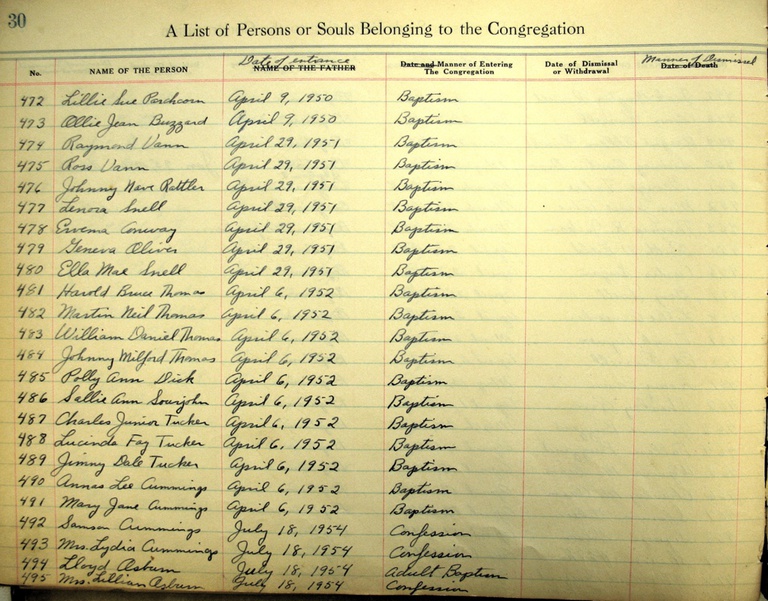 30
A List of Persons or Souls Belonging to the Congregation
Date of entrance Manner of Dismissal
No. NAME OF THE PERSON NAME OF THE FATHER Date and Manner of Entering The Congregation Date of Dismissal or Withdrawal Date of Death
472 Lillie Sue Parchcorn April 9, 1950 Baptism
473 Ollie Jean Buzzard April 9, 1950 Baptism
474 Raymond Vann April 29, 1951 Baptism
475 Ross Vann April 29, 1951 Baptism
476 Johnny Nave Rattler April 29, 1951 Baptism
477 Lenora Snell April 29, 1951 Baptism
478 Ervema Conway April 29, 1951 Baptism
479 Geneva Oliver April 29, 1951 Baptism
480 Ella Mae Snell April 29, 1951 Baptism
481 Harold Bruce Thomas April 6, 1952 Baptism
482 Martin Neil Thomas April 6, 1952 Baptism
483 William Daniel Thomas April 6, 1952 Baptism
484 Johnny Milford Thomas April 6, 1952 Baptism
485 Polly Ann Dick April 6, 1952 Baptism
486 Sallie Ann Sourjohn April 6, 1952 Baptism
487 Charles Junior Tucker April 6, 1952 Baptism
488 Lucinda Fay Tucker April 6, 1952 Baptism
489 Jimmy Dale Tucker April 6, 1952 Baptism
490 Annas Lee Cummings April 6, 1952 Baptism
491 Mary Jane Cummings April 6, 1952 Baptism
492 Samson Cummings July 18, 1954 Confession
493 Mrs. Lydia Cummings July 18, 1954 Confession
494 Lloyd Asburn July 18, 1954 Adult Baptism
495 Mrs. Lillian Asburn July 18, 1954 Confession